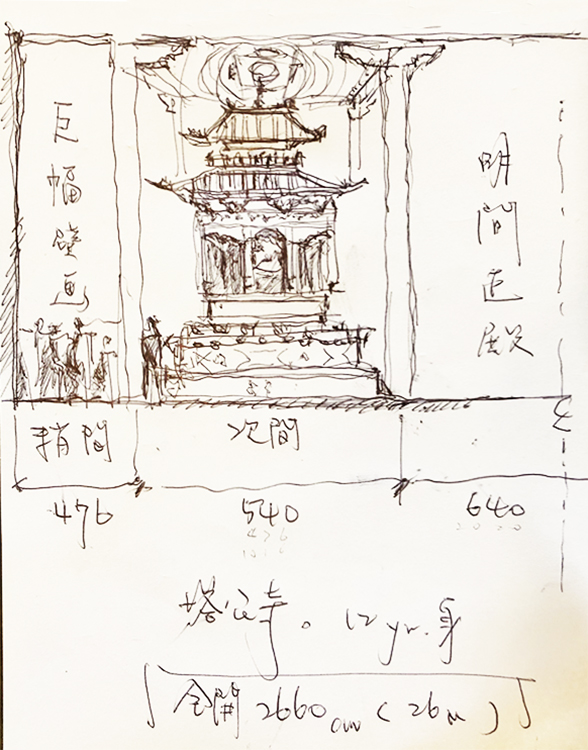 巨幅壁画
明間正殿
梢間 次間
476 540 640
塔公寺。
全開 2660 cm (26m)